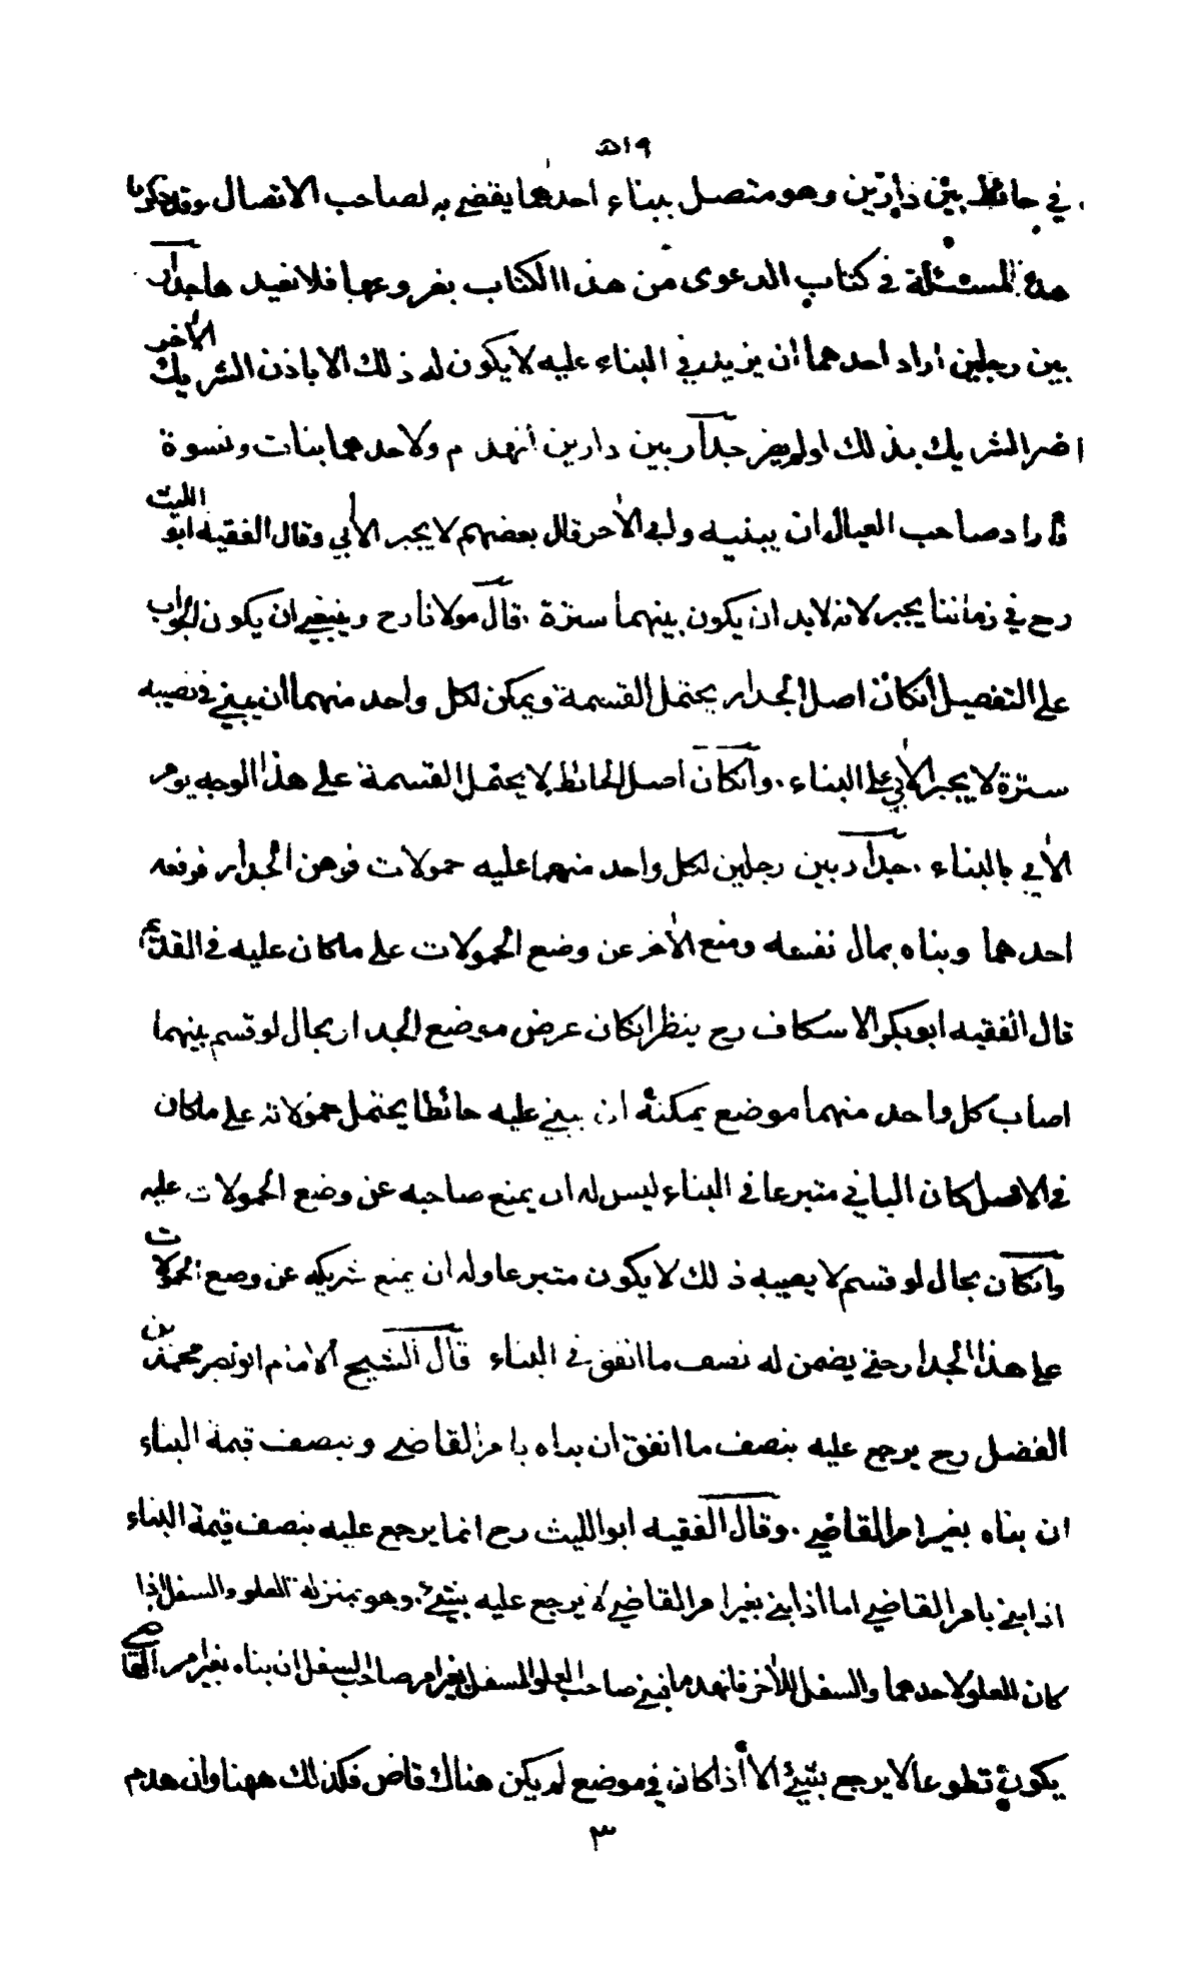 ٥١٩
في حائط بين دارين وهو متصل ببناء احدهما يقضي به لصاحب الاتصال وقد ذكرنا
هذه المسئلة في كتاب الدعوى من هذا الكتاب بفروعها فلا نعيدها جدار
بين رجلين اراد احدهما ان يزيد في البناء عليه لا يكون له ذلك الا باذن الشريك الآخر
اضر الشريك بذلك او لم يضر جدار بين دارين انهدم ولاحدهما بنات ونسوة
فاراد صاحب العيال ان يبنيه وابى الآخر قال بعضهم لا يجبر الآبي وقال الفقيه ابو الليث
رح في زماننا يجبر لانه لابد ان يكون بينهما سترة . قال مولانا رح وينبغي ان يكون الجواب
على التفصيل انكان اصل الجدار يحتمل القسمة ويمكن لكل واحد منهما ان يبني في نصيبه
سترة لا يجبر الآبي على البناء . وانكان اصل الحائط لا يحتمل القسمة على هذا الوجه يومر
الآبي بالبناء . جدار بين رجلين لكل واحد منهما عليه حمولات فوهن الجدار فرفعه
احدهما وبناه بمال نفسه ومنع الآخر عن وضع الحمولات على ما كان عليه في القديم
قال الفقيه ابو بكر الاسكاف رح ينظر انكان عرض موضع الجدار بحال لو قسم بينهما
اصاب كل واحد منهما موضع يمكنه ان يبني عليه حائطا يحتمل حمولاته على ما كان
في الاصل كان الباني متبرعا في البناء ليس له ان يمنع صاحبه عن وضع الحمولات عليه
وانكان بحال لو قسم لا يصيبه ذلك لا يكون متبرعا وله ان يمنع شريكه عن وضع الحمولات
على هذا الجدار حتى يضمن له نصف ما انفق في البناء قال الشيخ الامام ابو نصر محمد بن
الفضل رح يرجع عليه بنصف ما انفق ان بناه بامر القاضي وبنصف قيمة البناء
ان بناه بغير امر القاضي . وقال الفقيه ابو الليث رح انما يرجع عليه بنصف قيمة البناء
اذا بنى بامر القاضي اما اذا بنى بغير امر القاضي لا يرجع عليه بشئ . وهو بمنزلة العلو والسفل اذا
كان العلو لاحدهما والسفل للآخر فانهدما فبنى صاحب العلو السفل بغير امر صاحب السفل ان بناه بغير امر القاضي
يكون تطوعا لا يرجع بشئ الا اذا كان في موضع لم يكن هناك قاض فكذلك ههنا وان هدم
٣